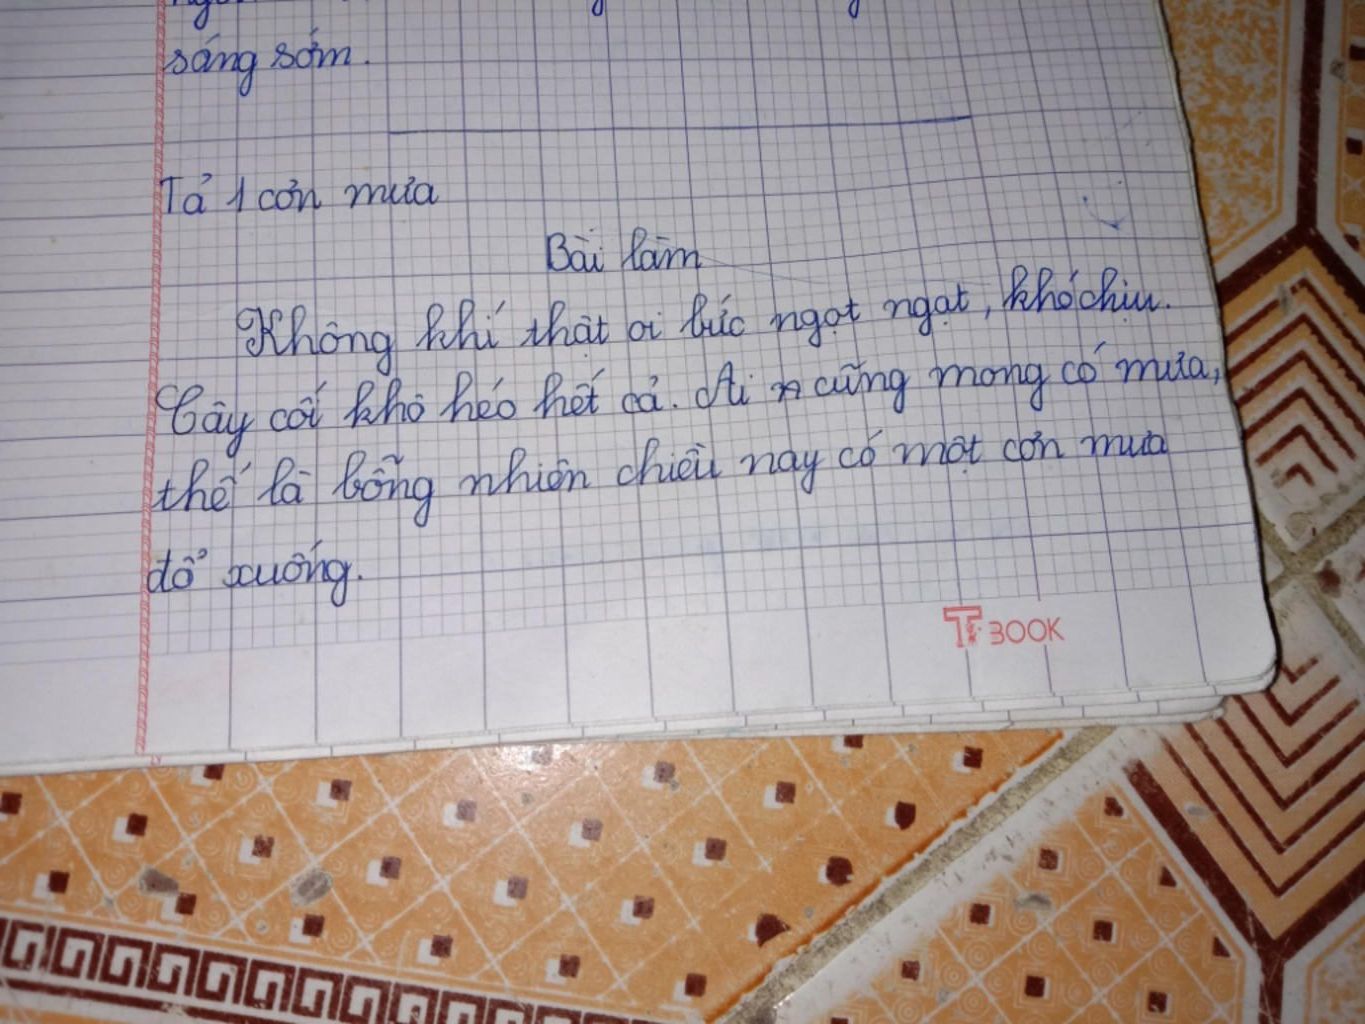 sáng sớm.
Tả 1 cơn mưa
Bài làm
Không khí thật oi bức ngọt ngạt, khó chịu.
Cây cối khô héo hết cả. Ai cũng mong có mưa,
thế là bỗng nhiên chiều nay có một cơn mưa
đổ xuống.
BOOK